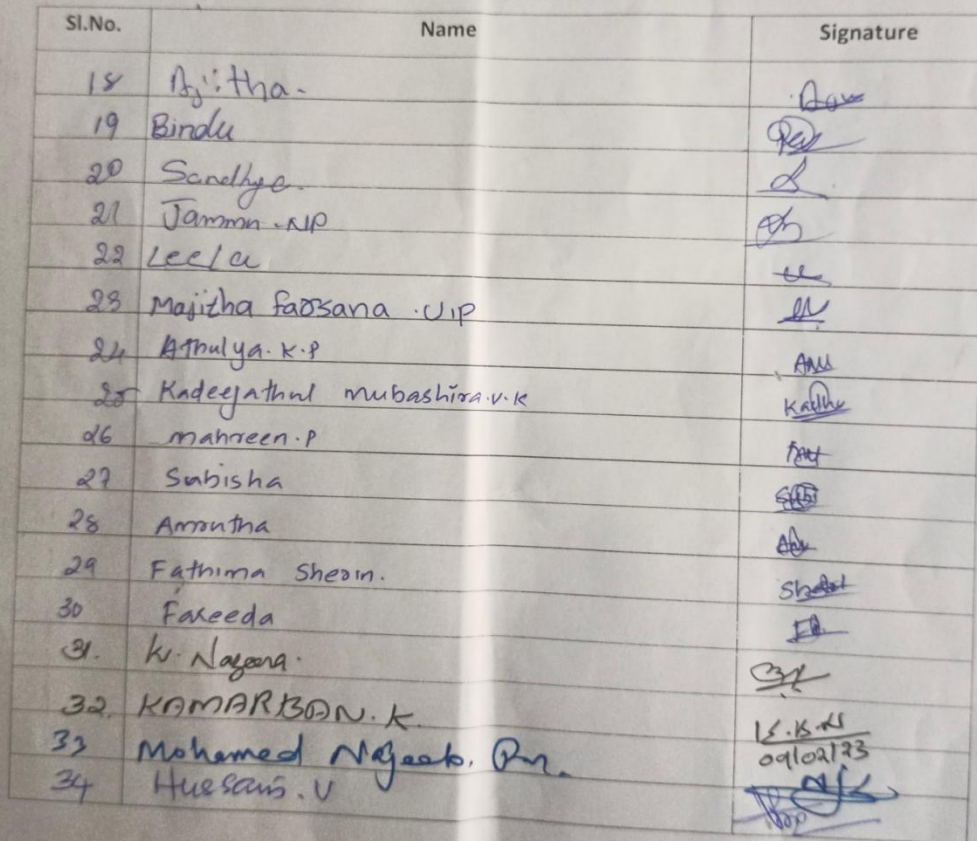 Sl.No. Name Signature
18 Ajitha.
19 Bindu
20 Sandhya.
21 NP
22 Leela
23 Majitha farsana .U.P
24 Athulya.K.P Anu
25 Kadeejathul mubashira.v.k Kadhu
26 mahreen.P
27 Sabisha
28 Amrutha
29 Fathima Sherin.
30 Fareeda
31. K. Nazeera.
32. KAMARBAN.K. K.B.N
09/02/23
33 Mohamed Najeeb.
34 Hussain.V